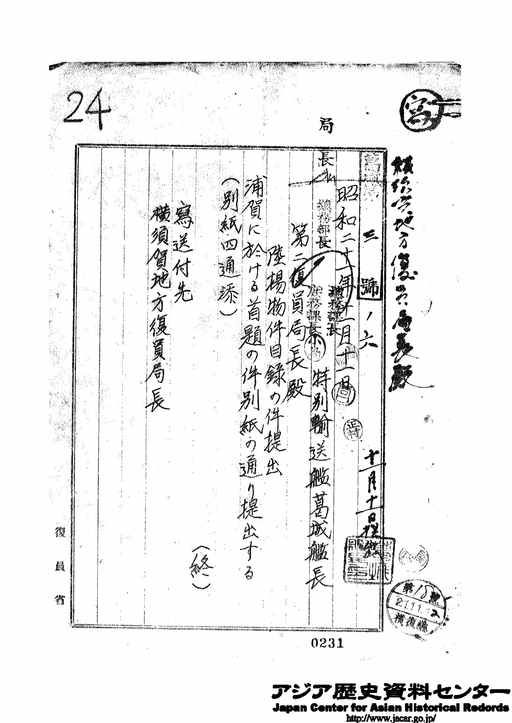 24
寫
横須賀地方復員局長殿
局長
總務部長
總務課長
庶務課長
第三號ノ六
昭和二十一年十一月十一日
特別輸送艦葛城艦長
第二復員局長殿
陸揚物件目録の件提出
浦賀に於ける首題の件別紙の通り提出する
(別紙四通添)
(終)
寫送付先
横須賀地方復員局長
十一月十一日
復員省
0231
アジア歴史資料センター
Japan Center for Asian Historical Records
http://www.jacar.go.jp/